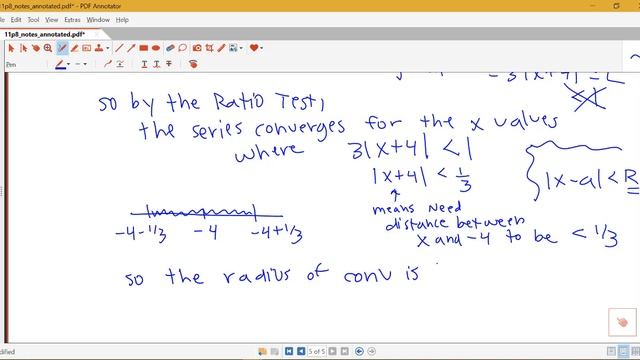 11p8_notes_annotated.pdf* - PDF Annotator
Edit View Insert Tools Window Help
11p8_notes_annotated.pdf*
Pen
3|x+4| = L
<1
so by the Ratio Test,
the series converges for the x values
where 3|x+4| < 1
|x+4| < 1/3
|x-a| < R
means need
distance between
x and -4 to be < 1/3
-4-1/3 -4 -4+1/3
so the radius of conv is
5 of 5